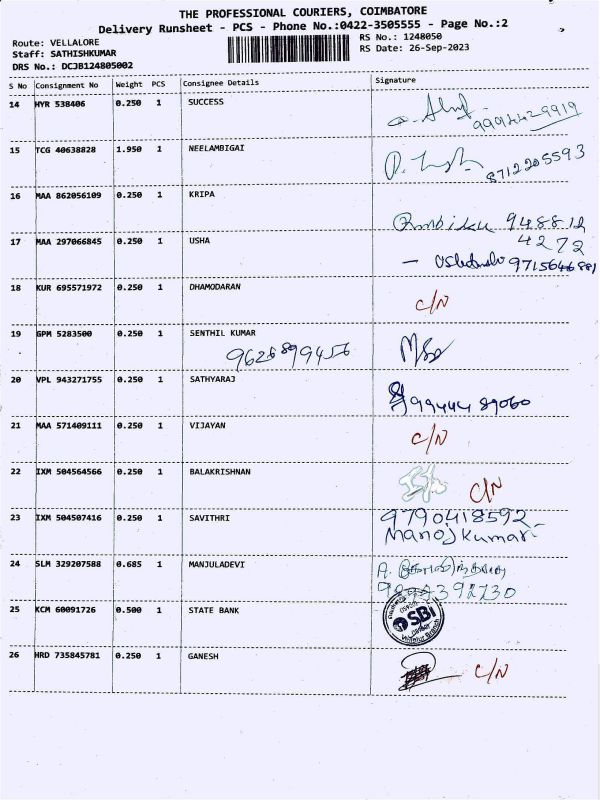 THE PROFESSIONAL COURIERS, COIMBATORE
Delivery Runsheet - PCS - Phone No.:0422-3505555 - Page No.:2
Route: VELLALORE
RS No.: 1248050
Staff: SATHISHKUMAR
RS Date: 26-Sep-2023
DRS No.: DCJB124805002
S No Consignment No Weight PCS Consignee Details Signature
14 HYR 538406 0.250 1 SUCCESS
9994429919
15 TCG 40638828 1.950 1 NEELAMBIGAI
8712205593
16 MAA 862056109 0.250 1 KRIPA
948812
17 MAA 297066845 0.250 1 USHA
4272
9715646881
18 KUR 695571972 0.250 1 DHAMODARAN
C/N
19 GPM 5283500 0.250 1 SENTHIL KUMAR
9626899456
20 VPL 943271755 0.250 1 SATHYARAJ
99444 89060
21 MAA 571409111 0.250 1 VIJAYAN
C/N
22 IXM 504564566 0.250 1 BALAKRISHNAN
C/N
23 IXM 504507416 0.250 1 SAVITHRI
9790418592
Manoj Kumar
24 SLM 329207588 0.685 1 MANJULADEVI
25 KCM 60091726 0.500 1 STATE BANK
SBI
26 HRD 735845781 0.250 1 GANESH
C/N